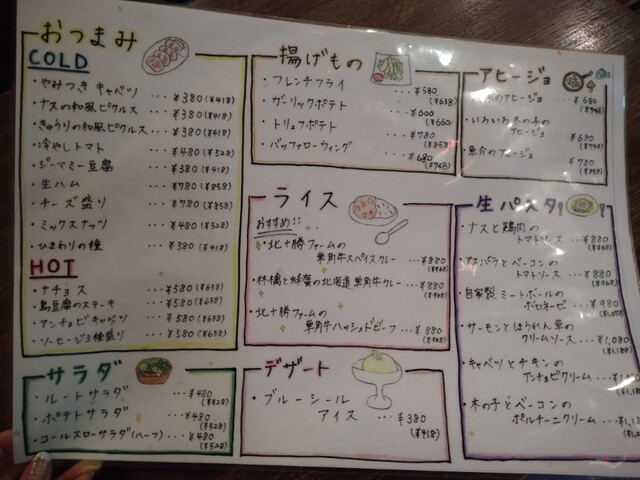 おつまみ
COLD
・やみつき キャベツ ・・・¥380(¥418)
・ナスの和風ピクルス ・・・¥380(¥418)
・きゅうりの和風ピクルス ・・・¥380(¥418)
・冷やしトマト ・・・¥480(¥528)
・ジーマミー豆腐 ・・・¥380(¥418)
・生ハム ・・・¥780(¥858)
・チーズ盛り ・・・¥780(¥858)
・ミックスナッツ ・・・¥480(¥528)
・ひまわりの種 ・・・¥380(¥418)
HOT
・ナチョス ・・・¥580(¥638)
・島豆腐のステーキ ・・・¥580(¥638)
・アンチョビキャベツ ・・・¥580(¥638)
・ソーセージ3種盛り ・・・¥580(¥638)
サラダ
・ルートサラダ ・・・¥480
(¥528)
・ポテトサラダ ・・・¥480
(¥528)
・コールスローサラダ(ハーフ) ・・・¥480
(¥528)
揚げもの
・フレンチフライ ・・・¥580
(¥638)
・ガーリックポテト ・・・¥600
(¥660)
・トリュフポテト ・・・¥780
(¥858)
・バッファローウィング ・・・¥680
(¥748)
ライス
おすすめ!!
・北十勝ファームの
短角牛スパイスカレー ・・・¥880
(¥968)
・林檎と蜂蜜の北海道 短角牛カレー ・・・¥880
(¥968)
・北十勝ファームの
短角牛ハッシュドビーフ ・・・¥880
(¥968)
デザート
・ブルーシール
アイス ・・・¥380
(¥418)
アヒージョ
のアヒージョ ・・・¥680
(¥748)
・いろいろ木の子の
アヒージョ ・・・¥680
(¥748)
・魚介のアヒージョ ・・・¥780
(¥858)
生パスタ
・ナスと鶏肉の
トマトソース ・・・¥880
(¥968)
・アスパラとベーコンの
トマトソース ・・・¥880
(¥968)
・自家製ミートボールの
ボロネーゼ ・・・¥980
(¥1,078)
・サーモンとほうれん草の
クリームソース ・・・¥1,080
(¥1,188)
・キャベツとチキンの
アンチョビクリーム ・・・
・木の子とベーコンの
ポルチーニクリーム ・・・